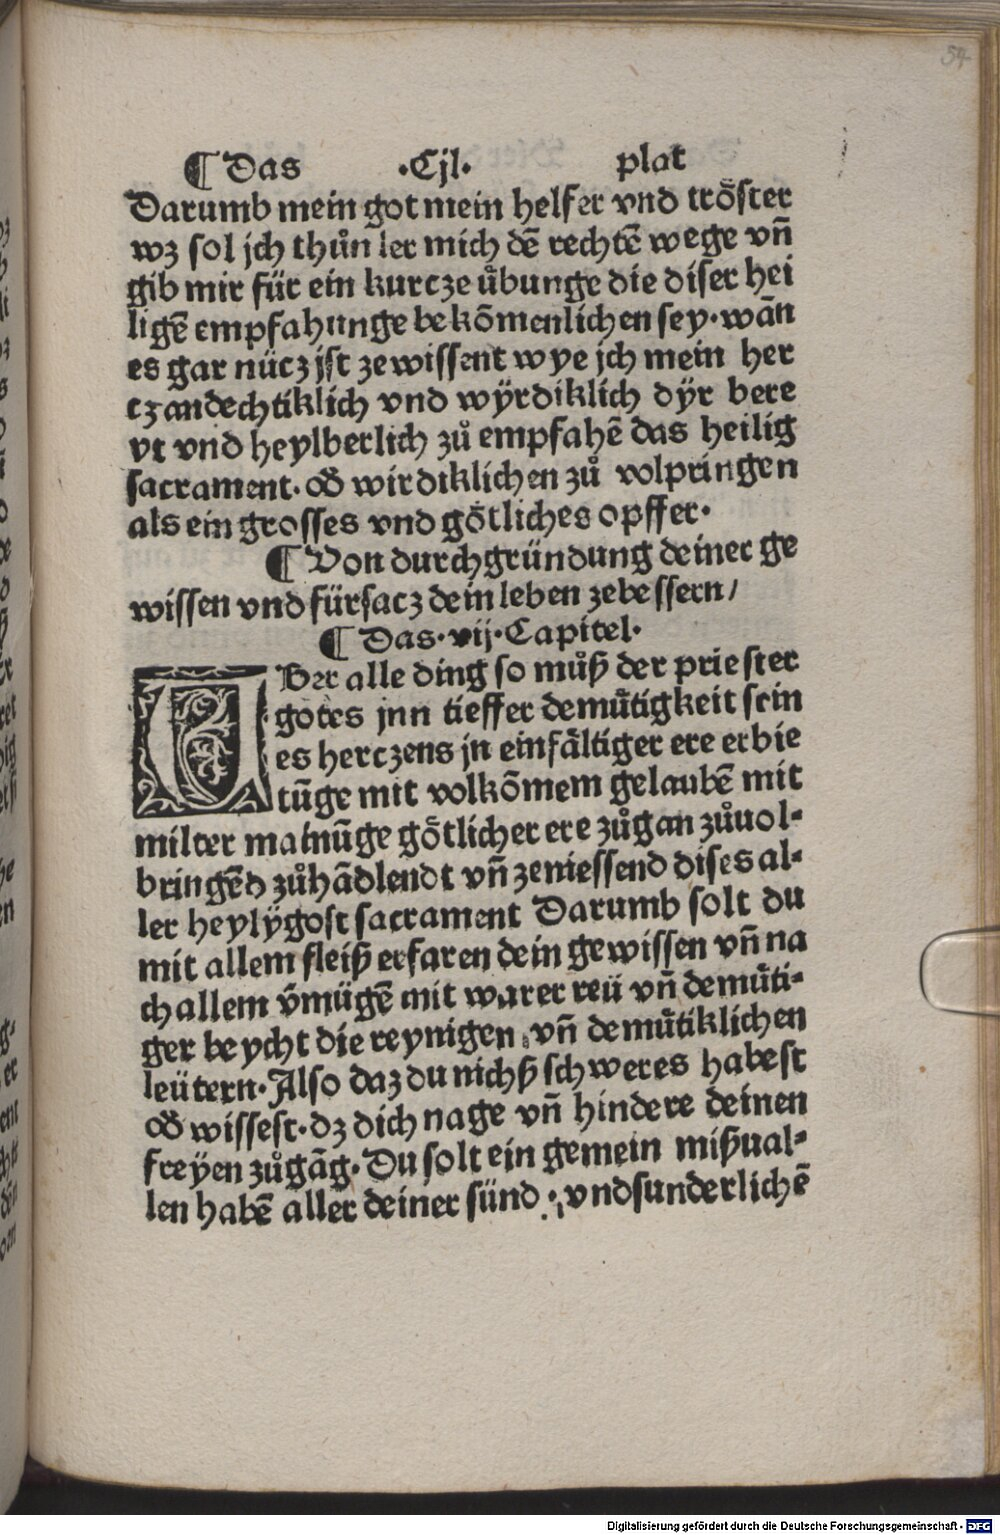 54
¶ Das .Cjl. plat
Darumb mein got mein helfer vnd tröster
wz sol jch thůn ler mich dē rechtē wege vn̄
gib mir für ein kurcze ůbunge die diser hei
ligē empfahunge bekōmenlichen sey·wān
es gar nücz jst ze wissent wye jch mein her
cz andechtiklich vnd wÿrdiklich dÿr bere
yt vnd heylberlich zů empfahē das heilig
sacrament·od̄ wirdiklichen zů volpringen
als ein grosses vnd götliches opffer·
¶ Von durchgründung deiner ge
wissen vnd fürsacz dein leben ze bessern/
¶ Das·vij·Capitel·
UBer alle ding so můß der priester
gotes jnn tieffer demůtigkeit sein
es herczens jn einfältiger ere erbie
tūge mit volkōmem gelaubē mit
milter mainūge götlicher ere zůgan zůuol-
bringēd zůhādlendt vn̄ zeniessend dises al-
ler heylÿgost sacrament Darumb solt du
mit allem fleiß erfaren dein gewissen vn̄ na
ch allem v̄mügē mit warer reü vn̄ demůti-
ger beycht die reynigen vn̄ demůtiklichen
leütern·Also daz du nichß schweres habest
od̄ wissest·dz dich nage vn̄ hindere deinen
freÿen zůgāg·Du solt ein gemein mißual-
len habē aller deiner sünd·vnd sunderlichē
Digitalisierung gefördert durch die Deutsche Forschungsgemeinschaft - DFG